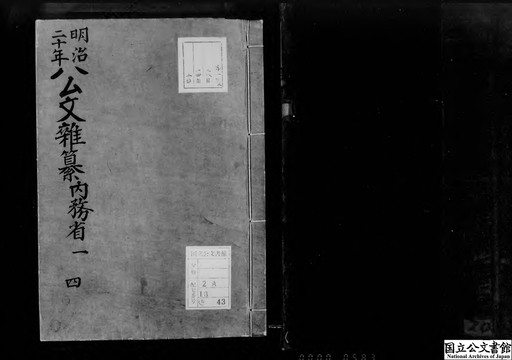 明治
二十年
公文雜纂 内務省 一 四
2 A
13
43
0000 0583
国立公文書館
National Archives of Japan